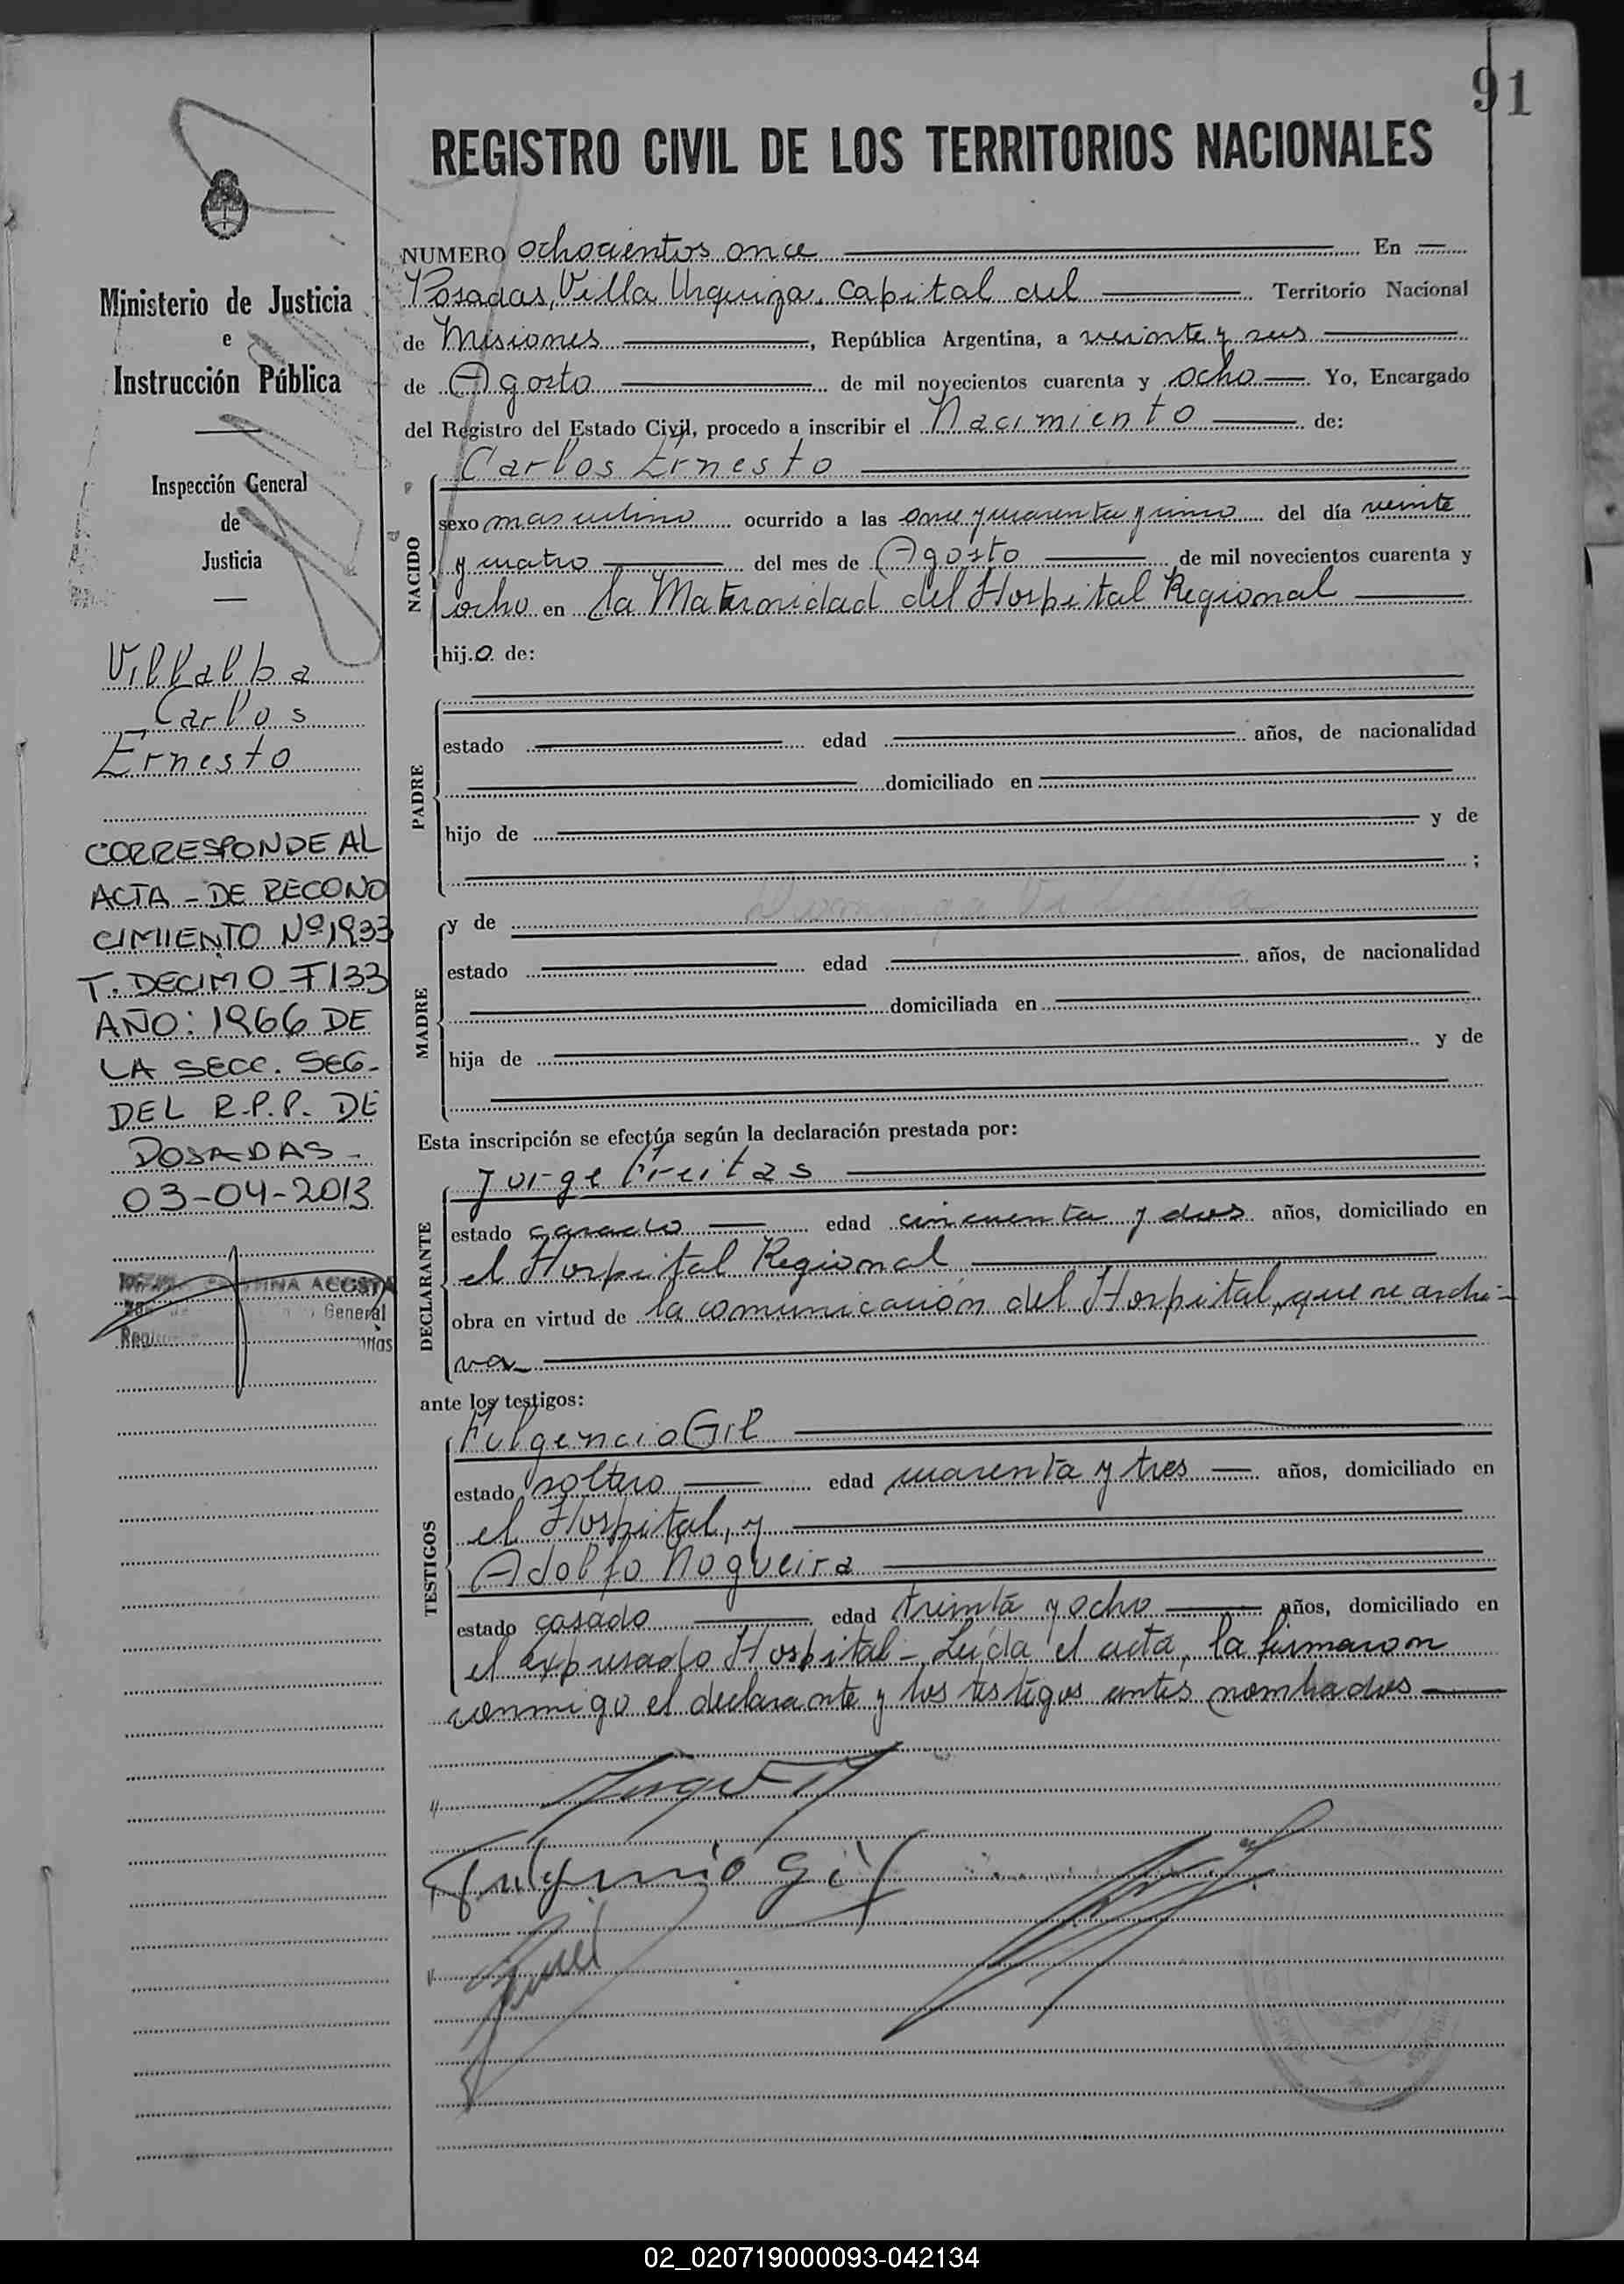 91
REGISTRO CIVIL DE LOS TERRITORIOS NACIONALES
Ministerio de Justicia
e
Instrucción Pública
Inspección General
de
Justicia
Villalba
Carlos
Ernesto
CORRESPONDE AL
ACTA - DE RECONO
CIMIENTO Nº 1933
T. DECIMO F 133
AÑO: 1966 DE
LA SECC. SEG-
DEL R.P.P. DE
POSADAS -
03-04-2013
ACOSTA
General
NUMERO ochocientos once En
Posadas, Villa Urquiza, capital del Territorio Nacional
de Misiones, República Argentina, a veinte y seis
de Agosto de mil novecientos cuarenta y ocho Yo, Encargado
del Registro del Estado Civil, procedo a inscribir el Nacimiento de:
NACIDO
Carlos Ernesto
sexo masculino ocurrido a las once y cuarenta y cinco del día veinte
y cuatro del mes de Agosto de mil novecientos cuarenta y
ocho en la Maternidad del Hospital Regional
hijo de:
PADRE
estado edad años, de nacionalidad
domiciliado en
hijo de y de
;
MADRE
y de
estado edad años, de nacionalidad
domiciliada en
hija de y de
Esta inscripción se efectúa según la declaración prestada por:
DECLARANTE
Jorge Freitas
estado casado edad cincuenta y dos años, domiciliado en
el Hospital Regional
obra en virtud de la comunicación del Hospital, que se archi-
va
ante los testigos:
TESTIGOS
Fulgencio Gil
estado soltero edad cuarenta y tres años, domiciliado en
el Hospital, y
Adolfo Nogueira
estado casado edad treinta y ocho años, domiciliado en
el expresado Hospital - Leída el acta, la firmaron
conmigo el declarante y los testigos antes nombrados
Fulgencio Gil
02_020719000093-042134